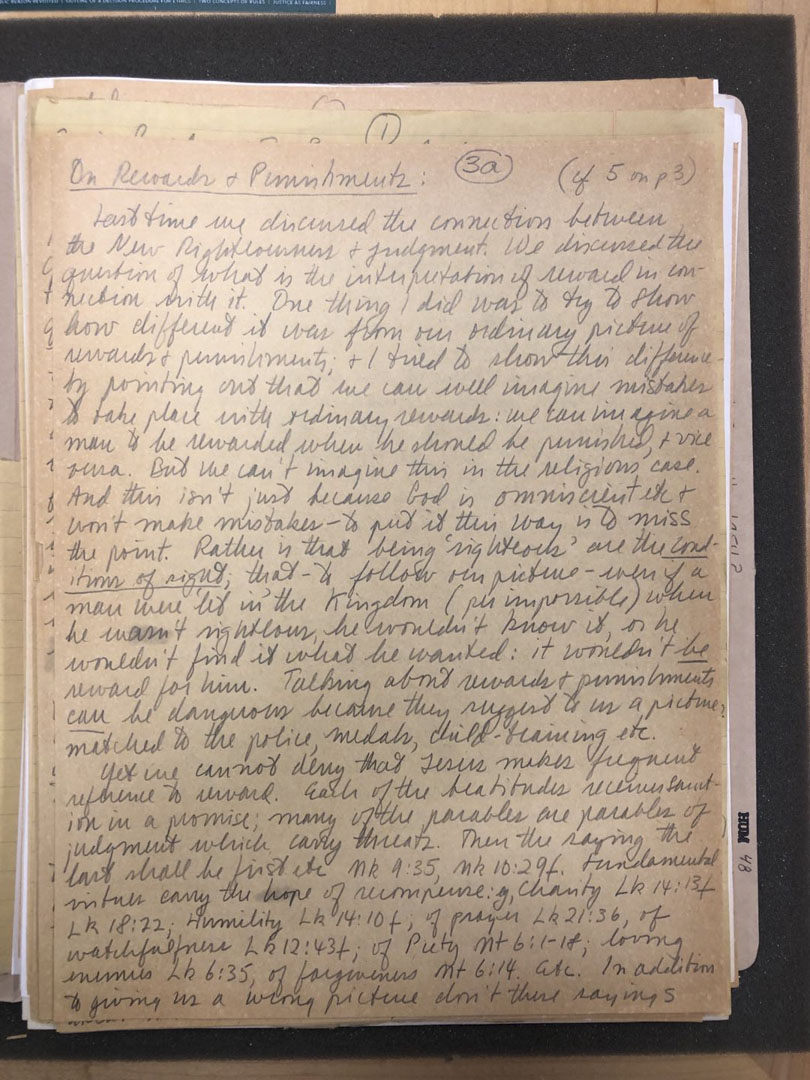 REASON REVISITED | OUTLINE OF A DECISION PROCEDURE FOR ETHICS | TWO CONCEPTS OF RULES | JUSTICE AS FAIRNESS
1
On Rewards & Punishments: 3a (cf 5 on p3)
Last time we discussed the connection between
the New Righteousness & judgment. We discussed the
question of what is the interpretation of reward in con-
nection with it. One thing I did was to try to show
how different it was from our ordinary picture of
rewards & punishments; & I tried to show this difference
by pointing out that we can well imagine mistakes
to take place with ordinary rewards: we can imagine a
man to be rewarded when he should be punished, & vice
versa. But we can't imagine this in the religious case.
And this isn't just because God is omniscient etc &
won't make mistakes – to put it this way is to miss
the point. Rather is that being 'righteous' are the cond-
itions of right, that – to follow our picture – even if a
man were let in the Kingdom (per impossible) when
he wasn't righteous, he wouldn't know it, or he
wouldn't find it what he wanted: it wouldn't be
reward for him. Talking about rewards & punishments
can be dangerous because they suggest to us a picture
matched to the police, medals, child-training etc.
Yet we cannot deny that Jesus makes frequent
reference to reward. Each of the beatitudes receives sanct-
ion in a promise; many of the parables are parables of
judgment which carry threats. Then the saying the
last shall be first etc Mk 9:35, Mk 10:29f. Fundamental
virtues carry the hope of recompense: g, Charity Lk 14:13f
Lk 18:22; Humility Lk 14:10f; of prayer Lk 21:36, of
watchfulness Lk 12:43f; of Piety Mt 6:1-18; loving
enemies Lk 6:35, of forgiveness Mt 6:14. Etc. In addition
to giving us a wrong picture don't these sayings
HOM
48